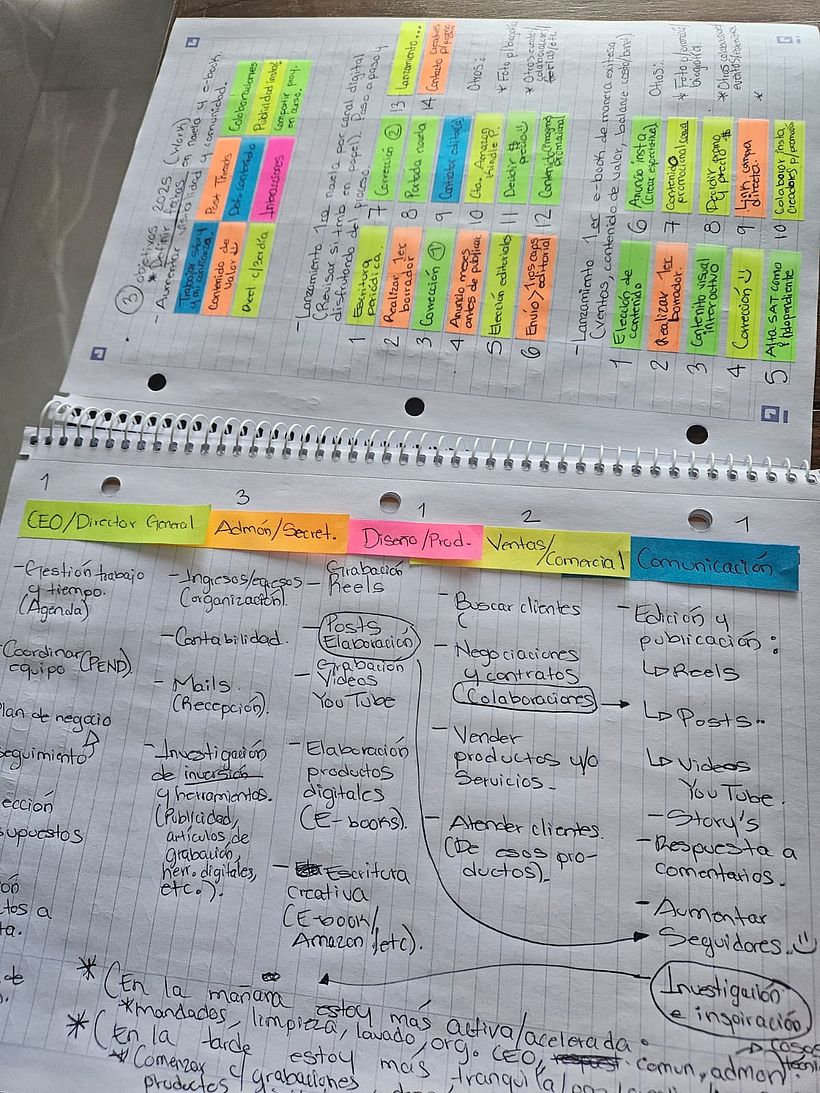 ③ objetivos 2025 (Work)
* Definir fechas en novela y e-book.
- Aumentar visibilidad y comunidad.
Trabajar story
y mi confianza.
Contenido de
valor
Reel c/3er día
Post Threads
Interacciones
Colaboraciones
Publicidad insta.
Compartir proy.
en curso.
- Lanzamiento 1ra novela por canal digital
(Revisar si trib en papel). Paso a paso y
disfrutando del proceso.
1 Escritura
periódica.
2 Realizar 1er
borrador
3 Corrección ①
4 Anuncio meses
antes de publicar.
5 Elección editoriales
6 Envío > 1os caps
editorial
7 Corrección ②
8 Portada novela
9 Contratar editorial
10 Cta. Amazon
Kindle P.
11 Decidir $
precio
12 Contenido/imagino
promocional
13 Lanzamiento...
14 Contacto
Otros:
- Lanzamiento 1er e-book de manera exitosa
(ventas, contenido de valor, balance costo/band)
1 Elección de
contenido
2 Realizar 1er
borrador.
3 Contenido visual
interactivo
4 Corrección
5 Alta SAT como
independiente
6 Anuncio insta
(crear expectativa)
7 Contenido
promocional
8 Decidir pago
y precio $
9 Link compra
directa.
10 Colaborar insta
creadores p/promo
Otros:
*
1
CEO/Director General
- Gestión trabajo
y tiempo.
(Agenda)
Coordinar
equipo (PEND).
lan de negocio
seguimiento
ección
supuestos
ón
tos a
ta.
de
3
Admón/Secret.
- Ingresos/egresos
(organización).
- Contabilidad.
- Mails.
(Recepción).
- Investigación
de inversión
y herramientas.
(Publicidad,
artículos de
grabación,
herr. digitales,
etc.).
1
Diseño/Prod.
- Grabación
Reels
- Posts
Elaboración
- Grabación
Videos
YouTube
- Elaboración
productos
digitales
(E-books).
- Escritura
creativa
(E-book/
Amazon/etc).
2
Ventas/
Comercial
- Buscar clientes
(
- Negociaciones
y contratos
(Colaboraciones)
- Vender
productos y/o
Servicios.
- Atender clientes.
(De esos pro-
ductos).
1
Comunicación
- Edición y
publicación:
↳ Reels
↳ Posts..
↳ Videos
YouTube.
- Story's
- Respuesta a
comentarios.
- Aumentar
Seguidores.
Investigación
e inspiración
* (En la mañana estoy más activa/acelerada.
*mandados, limpieza, lavado, org. CEO, comun, admon
* (En la tarde estoy más tranquila
* Comenzar c/grabaciones
productos